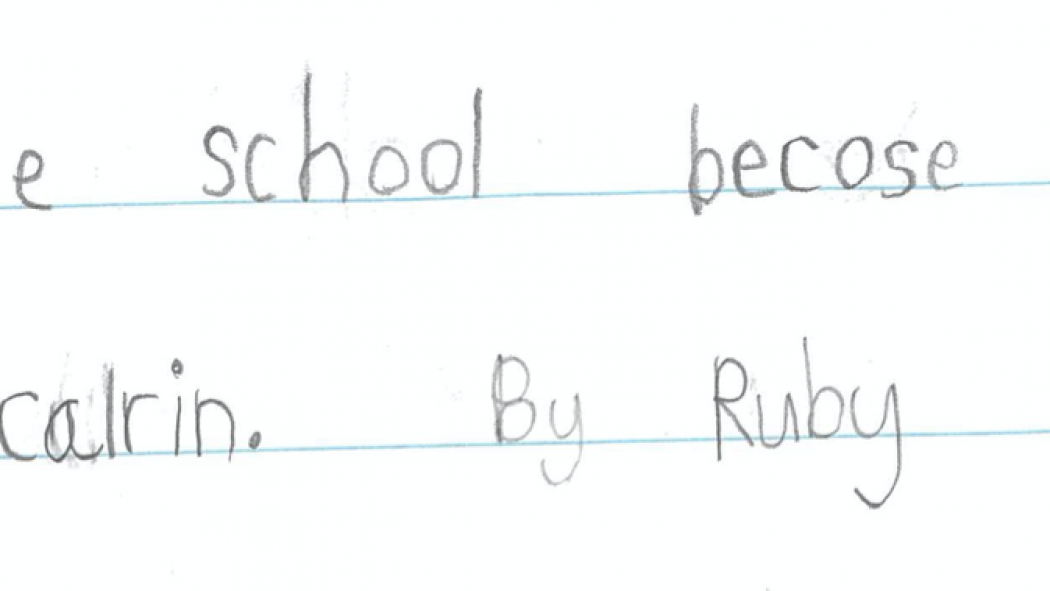 e school becose
calrin. By Ruby